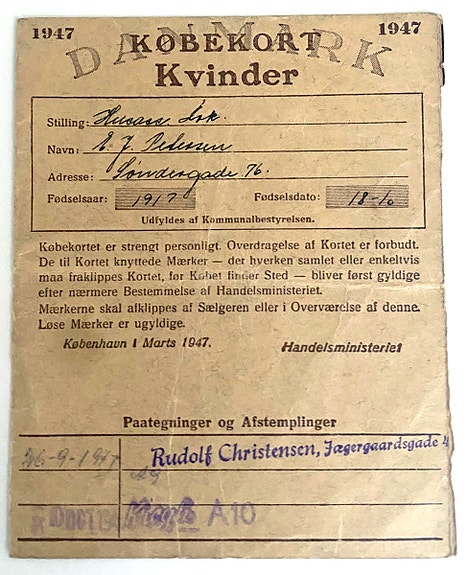 1947 DANMARK 1947
KØBEKORT
Kvinder
Stilling:
Navn: E. J. Petersen
Adresse: Søndergade 76.
Fødselsaar: 1917 Fødselsdato: 18-10
Udfyldes af Kommunalbestyrelsen.
Købekortet er strengt personligt. Overdragelse af Kortet er forbudt.
De til Kortet knyttede Mærker — der hverken samlet eller enkeltvis
maa fraklippes Kortet, før Købet finder Sted — bliver først gyldige
efter nærmere Bestemmelse af Handelsministeriet.
Mærkerne skal afklippes af Sælgeren eller i Overværelse af denne.
Løse Mærker er ugyldige.
København 1 Marts 1947. Handelsministeriet
Paategninger og Afstemplinger
26-9-1947 Rudolf Christensen, Jægergaardsgade 4
A10